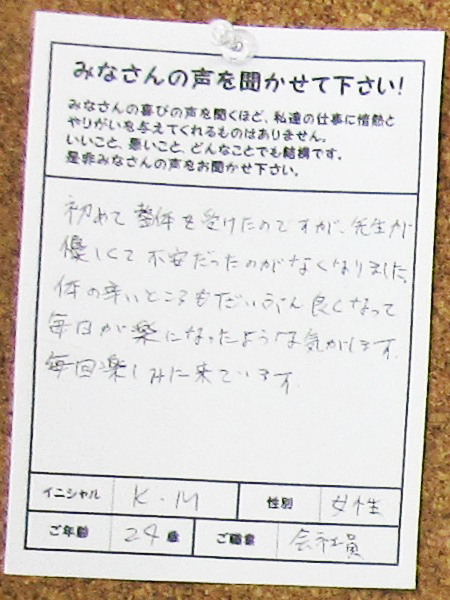 みなさんの声を聞かせて下さい!
みなさんの喜びの声を聞くほど、私達の仕事に情熱と
やりがいを与えてくれるものはありません。
いいこと、悪いこと、どんなことでも結構です。
是非みなさんの声をお聞かせ下さい。
初めて整体を受けたのですが、先生が
優しくて不安だったのがなくなりました。
体の辛いところもだいぶん良くなって
毎日が楽になったような気がします。
毎回楽しみに来ています。
イニシャル K・M 性別 女性
ご年齢 24歳 ご職業 会社員